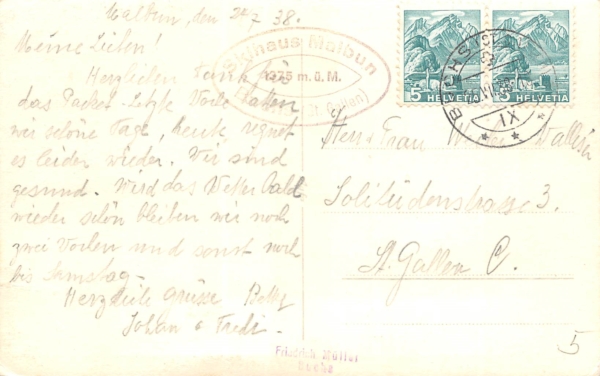 Malbun, den 24/7 38.
Meine Lieben!
Herzlichen Dank für
das Packet. Letzte Woche hatten
wir schöne Tage, heute regnet
es leider wieder. Wir sind
gesund. Wird das Wetter bald
wieder schön bleiben wir noch
zwei Wochen und sonst noch
bis Samstag.
Herzliche Grüsse Betty
Johan & Fredi.
Skihaus Malbun
1375 m.ü.M.
(St. Gallen)
5 HELVETIA
5 HELVETIA
BUCHS
IX
Herr & Frau Wallier
Solitüdenstrasse 3.
St. Gallen C.
Friedrich Müller
Buchs
5